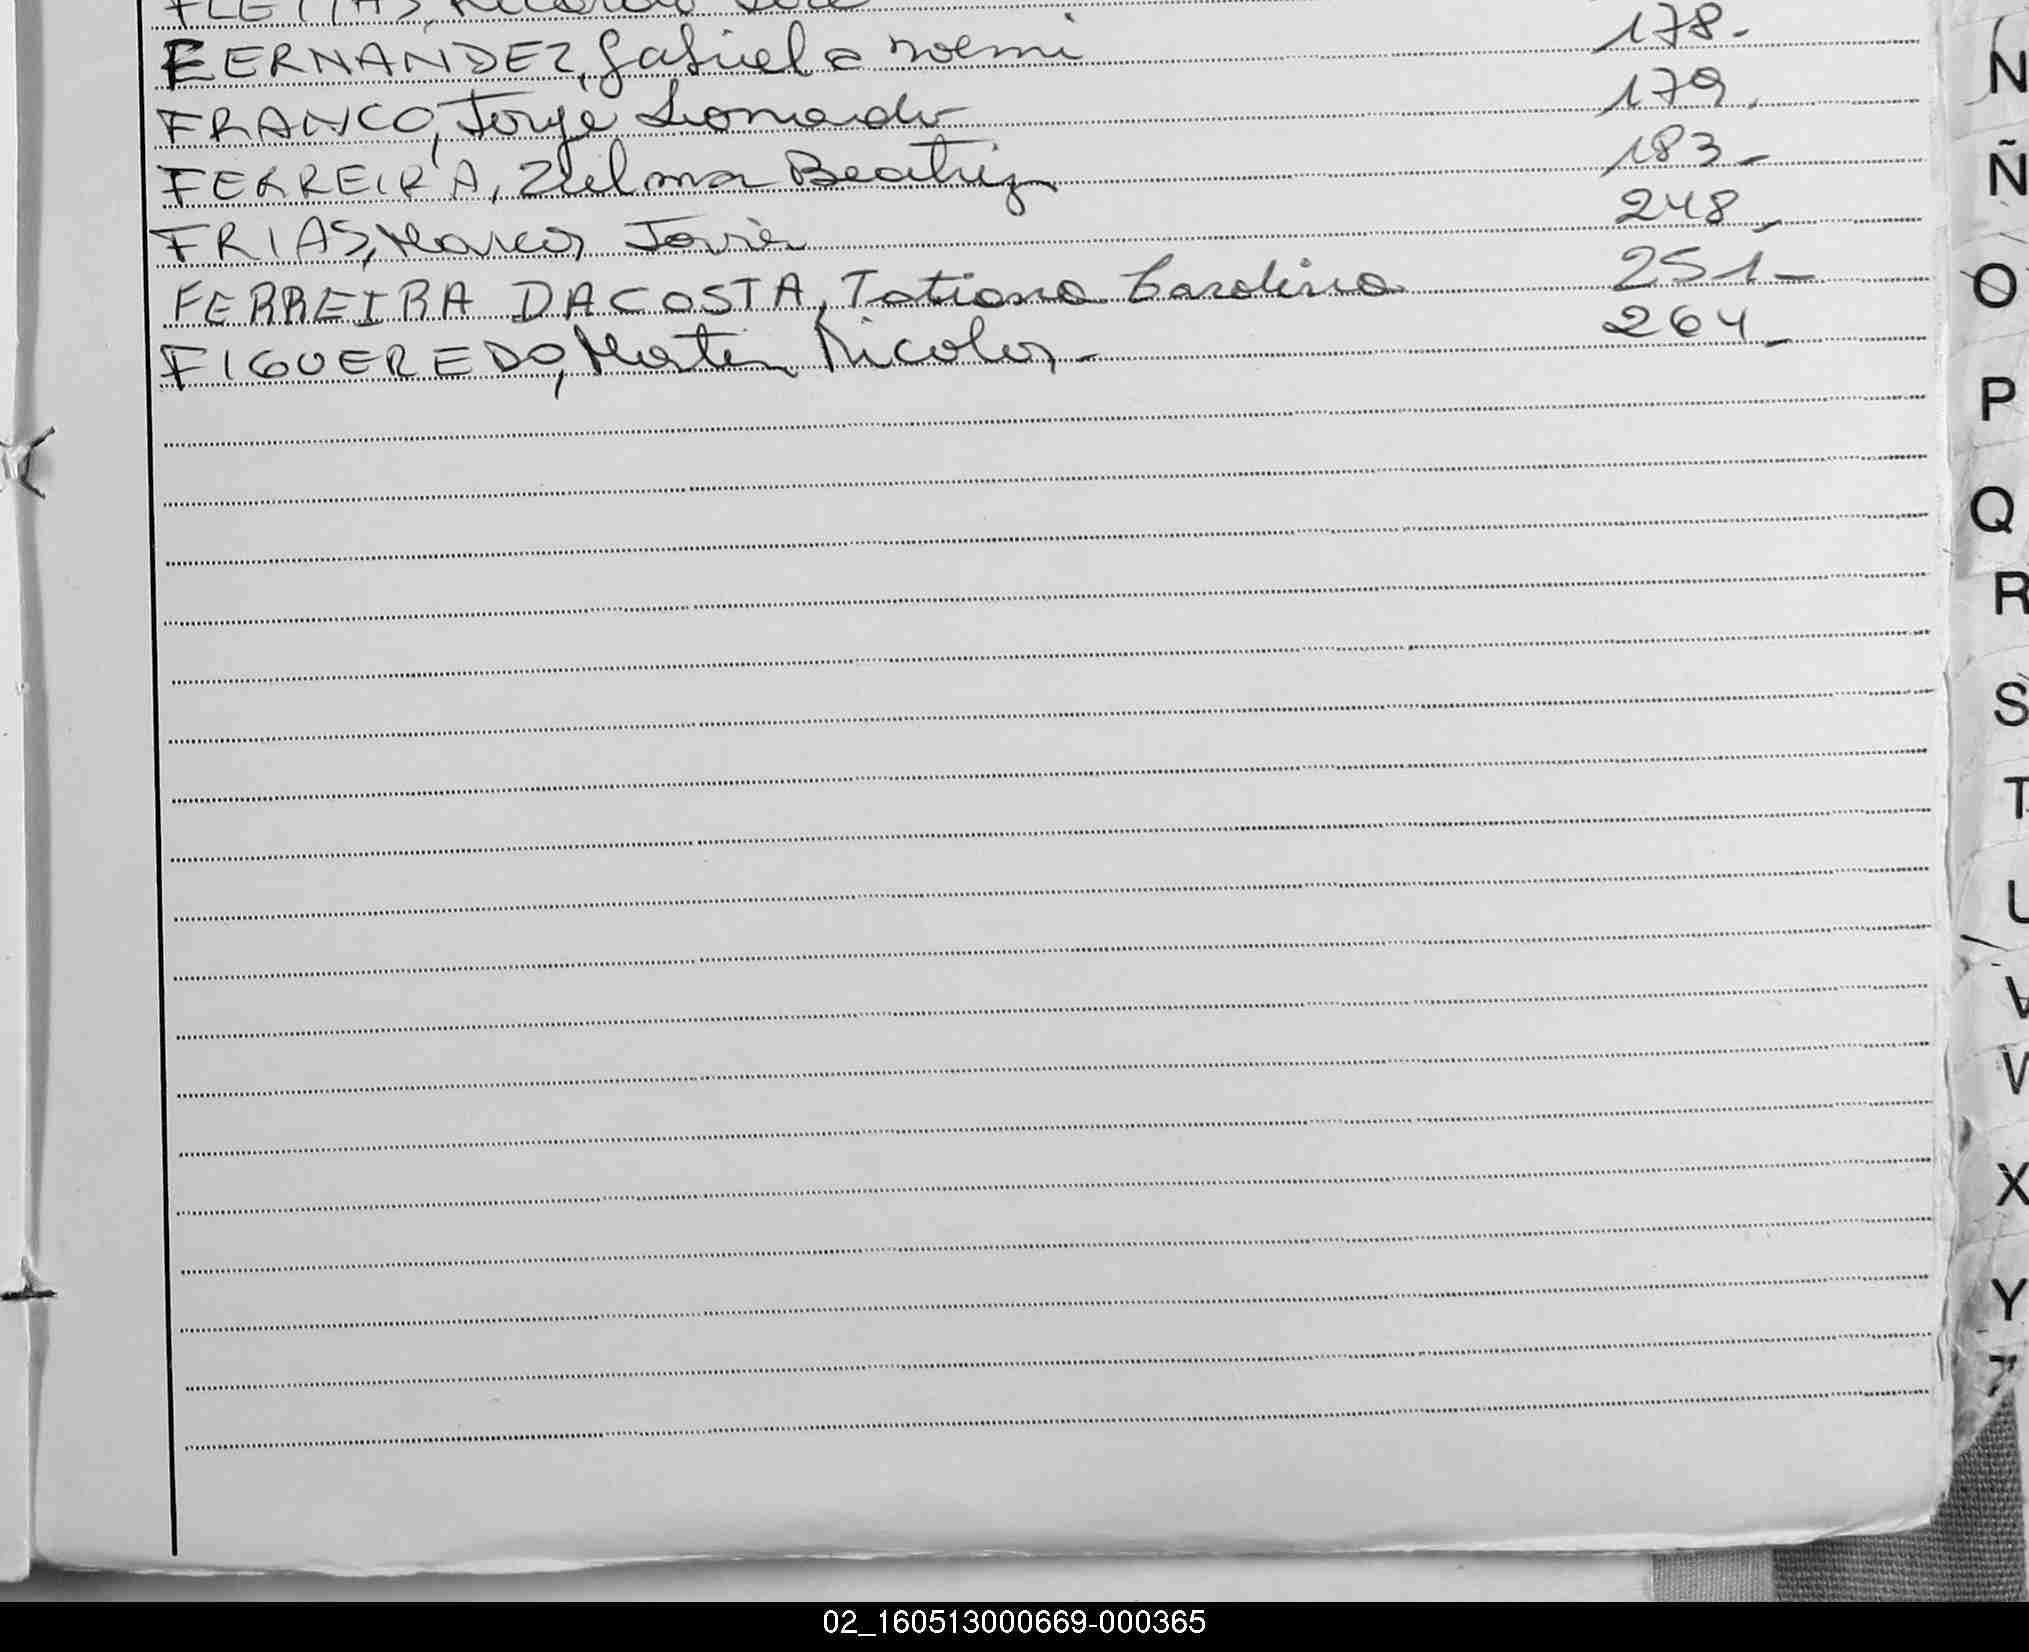 FLEITAS, Ricardo José
FERNANDEZ, Gabriela Noemi 178-
FRANCO, Jorge Leonardo 179.
FERREIRA, Zulma Beatriz 183-
FRIAS, Marcos Javier 248-
FERREIRA DACOSTA, Tatiana Carolina 251-
FIGUEREDO, Martin Nicolas.- 264-
N
Ñ
O
P
Q
R
S
T
U
V
X
Y
Z
02_160513000669-000365